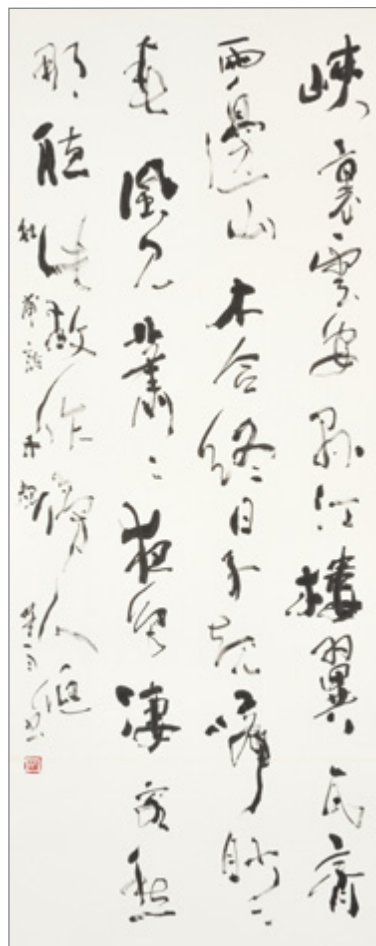 峽裏雲安縣江樓翼瓦齊
兩邊山木合終日子規啼眇々
春風見蕭々夜色凄客愁
那聽此故作傍人低
杜甫詩子規